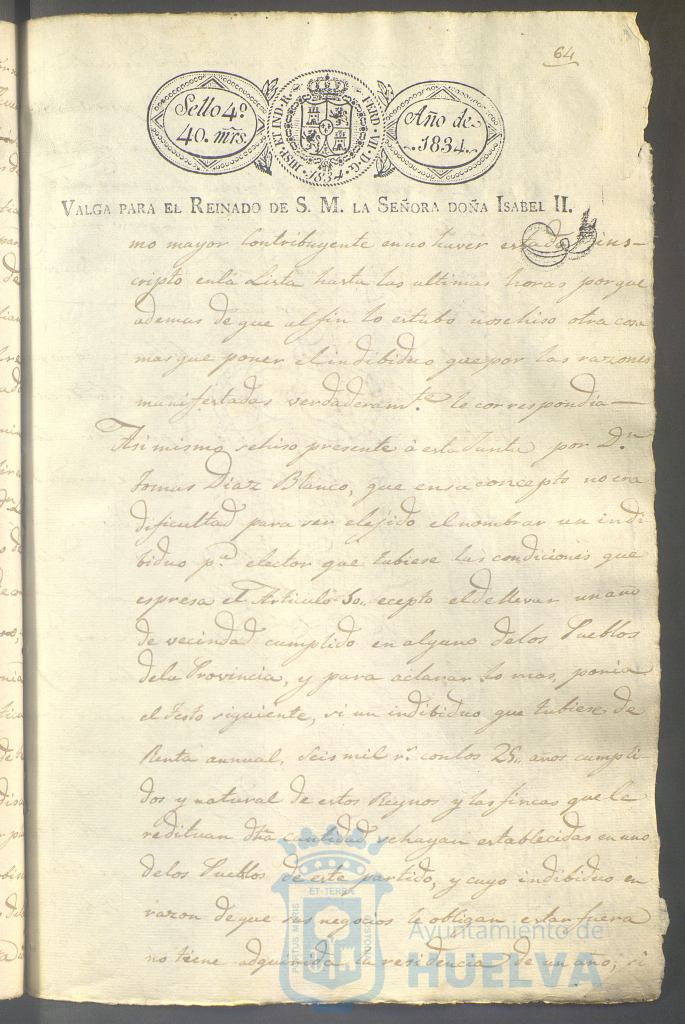 64
Sello 4º
40. mrs.
HISP. ET IND. R. FERD. VII. D. G. 1834.
Año de
1834.
VALGA PARA EL REINADO DE S. M. LA SEÑORA DOÑA ISABEL II.
mo mayor Contribuyente en no haver estado ins-
cripto en la Lista hasta las ultimas horas porque
ademas de que al fin lo estubo no se hiso otra cosa
mas que poner el indibiduo que por las razones
manifestadas verdaderamte. le correspondia—
Asi mismo se hiso presente á esta Junta por Dn.
Tomas Diaz Blanco, que en su concepto no era
dificultad para ser elejido el nombrar un indi
biduo pa. elector que tubiese las condiciones que
espresa el Articulo 50., ecepto el de llevar un año
de vecindad cumplido en alguno de los Pueblos
de la Provincia, y para aclararlo mas, ponia
el testo siguiente, si un indibiduo que tubiese de
Renta annual, Seis mil rs. con los 25., años cumpli
dos y natural de estos Reynos y las fincas que le
redituan dha cantidad se hayan establecidas en uno
de los Pueblos de este partido, y cuyo indibiduo en
razon de que sus negocios le obligan estar fuera
no tiene adquirida la residencia de un año, si
PORTUS MARIS ET TERRAE CUSTODIA
Ayuntamiento de
HUELVA